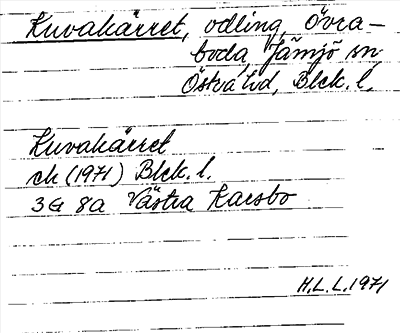 Kuvakärret, odling, Övra-
boda, Jämjö sn
Östra hd, Blek. l.
Kuvakärret
ek (1971) Blek. l.
3G 8a Västra Karsbo
H.L.L. 1971